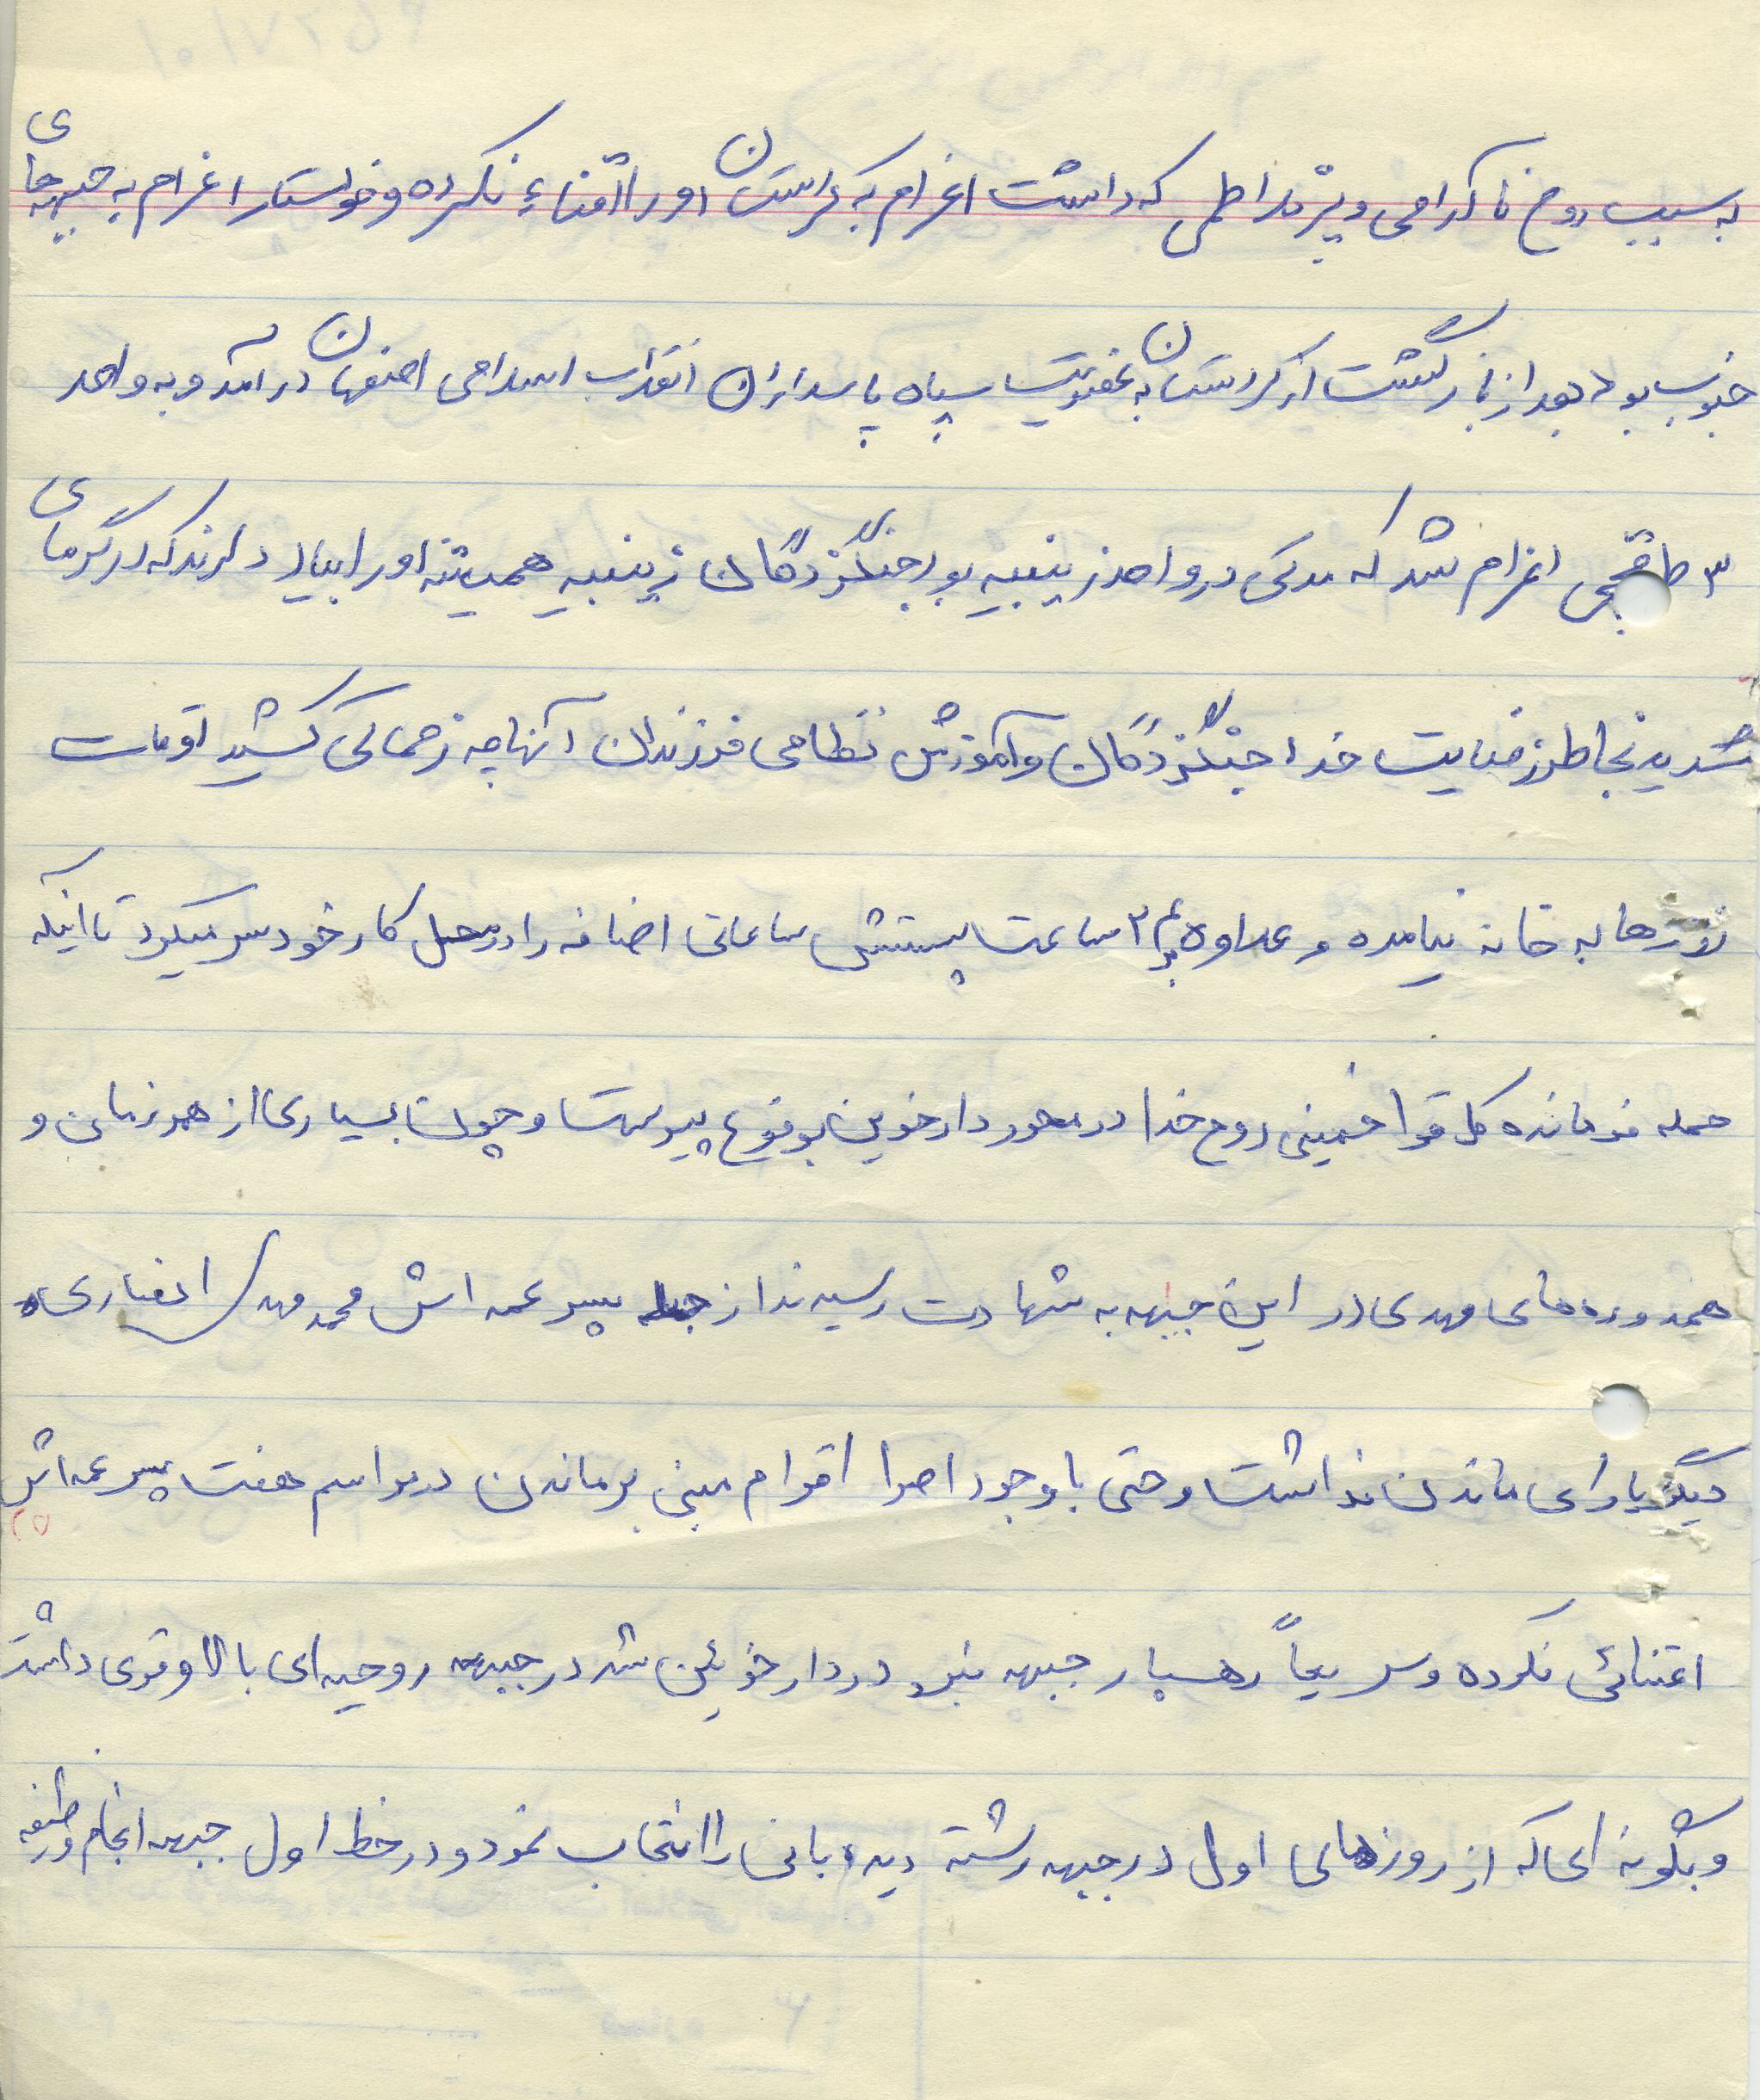 به سبب روح ناآرامی و پرتلاطمی که داشت اعزام به کردستان او را اقناء نکرده و خواستار اعزام به جبهه‌های
جنوب بود بعد از بازگشت از کردستان به عضویت سپاه پاسداران انقلاب اسلامی اصفهان درآمد و به واحد
اعزام شد که مدتی در واحد زینبیه بود جنگزدگان زینبیه همیشه او را بیاد دارند که در گرمای
شدید بخاطر رضایت خدا جنگزدگان و آموزش نظامی فرزندان آنها چه زحماتی کشید اوقات
روزها به خانه نیامده و علاوه بر ۲۴ ساعت پستش ساعاتی اضافه را در محل کار خود سر میکرد تا اینکه
حمله فرمانده کل قوا خمینی روح خدا در محور دارخوین بوقوع پیوست و چون بسیاری از همرزمان و
همدوره‌های مهدی در این جبهه به شهادت رسیدند از جمله پسر عمه اش محمد مهدی انصاری
دیگر یارای ماندن نداشت و حتی با وجود اصرا اقوام مبنی بر ماندن در مراسم هفت پسر عمه اش
اعتنائی نکرده و سریعاً رهسپار جبهه نبرد در دارخوئین شد در جبهه روحیه‌ای بالا و قوی داشت
و بگونه ای که از روزهای اول در جبهه رشته دیده بانی را انتخاب نمود و در خط اول جبهه انجام وظیفه